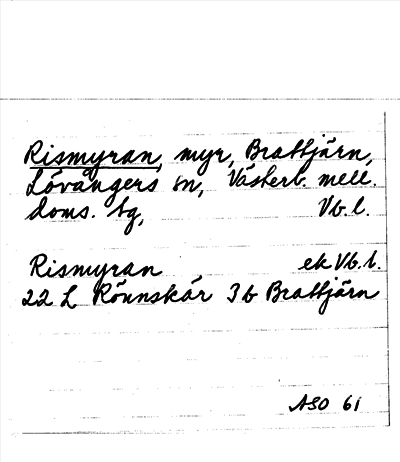 Rismyran, myr, Brattjärn,
Lövångers sn, Västerb. mell.
doms. tg, Vb. l.
Rismyran ek Vb. l.
22 L Rönnskär 3b Brattjärn
ASO 61